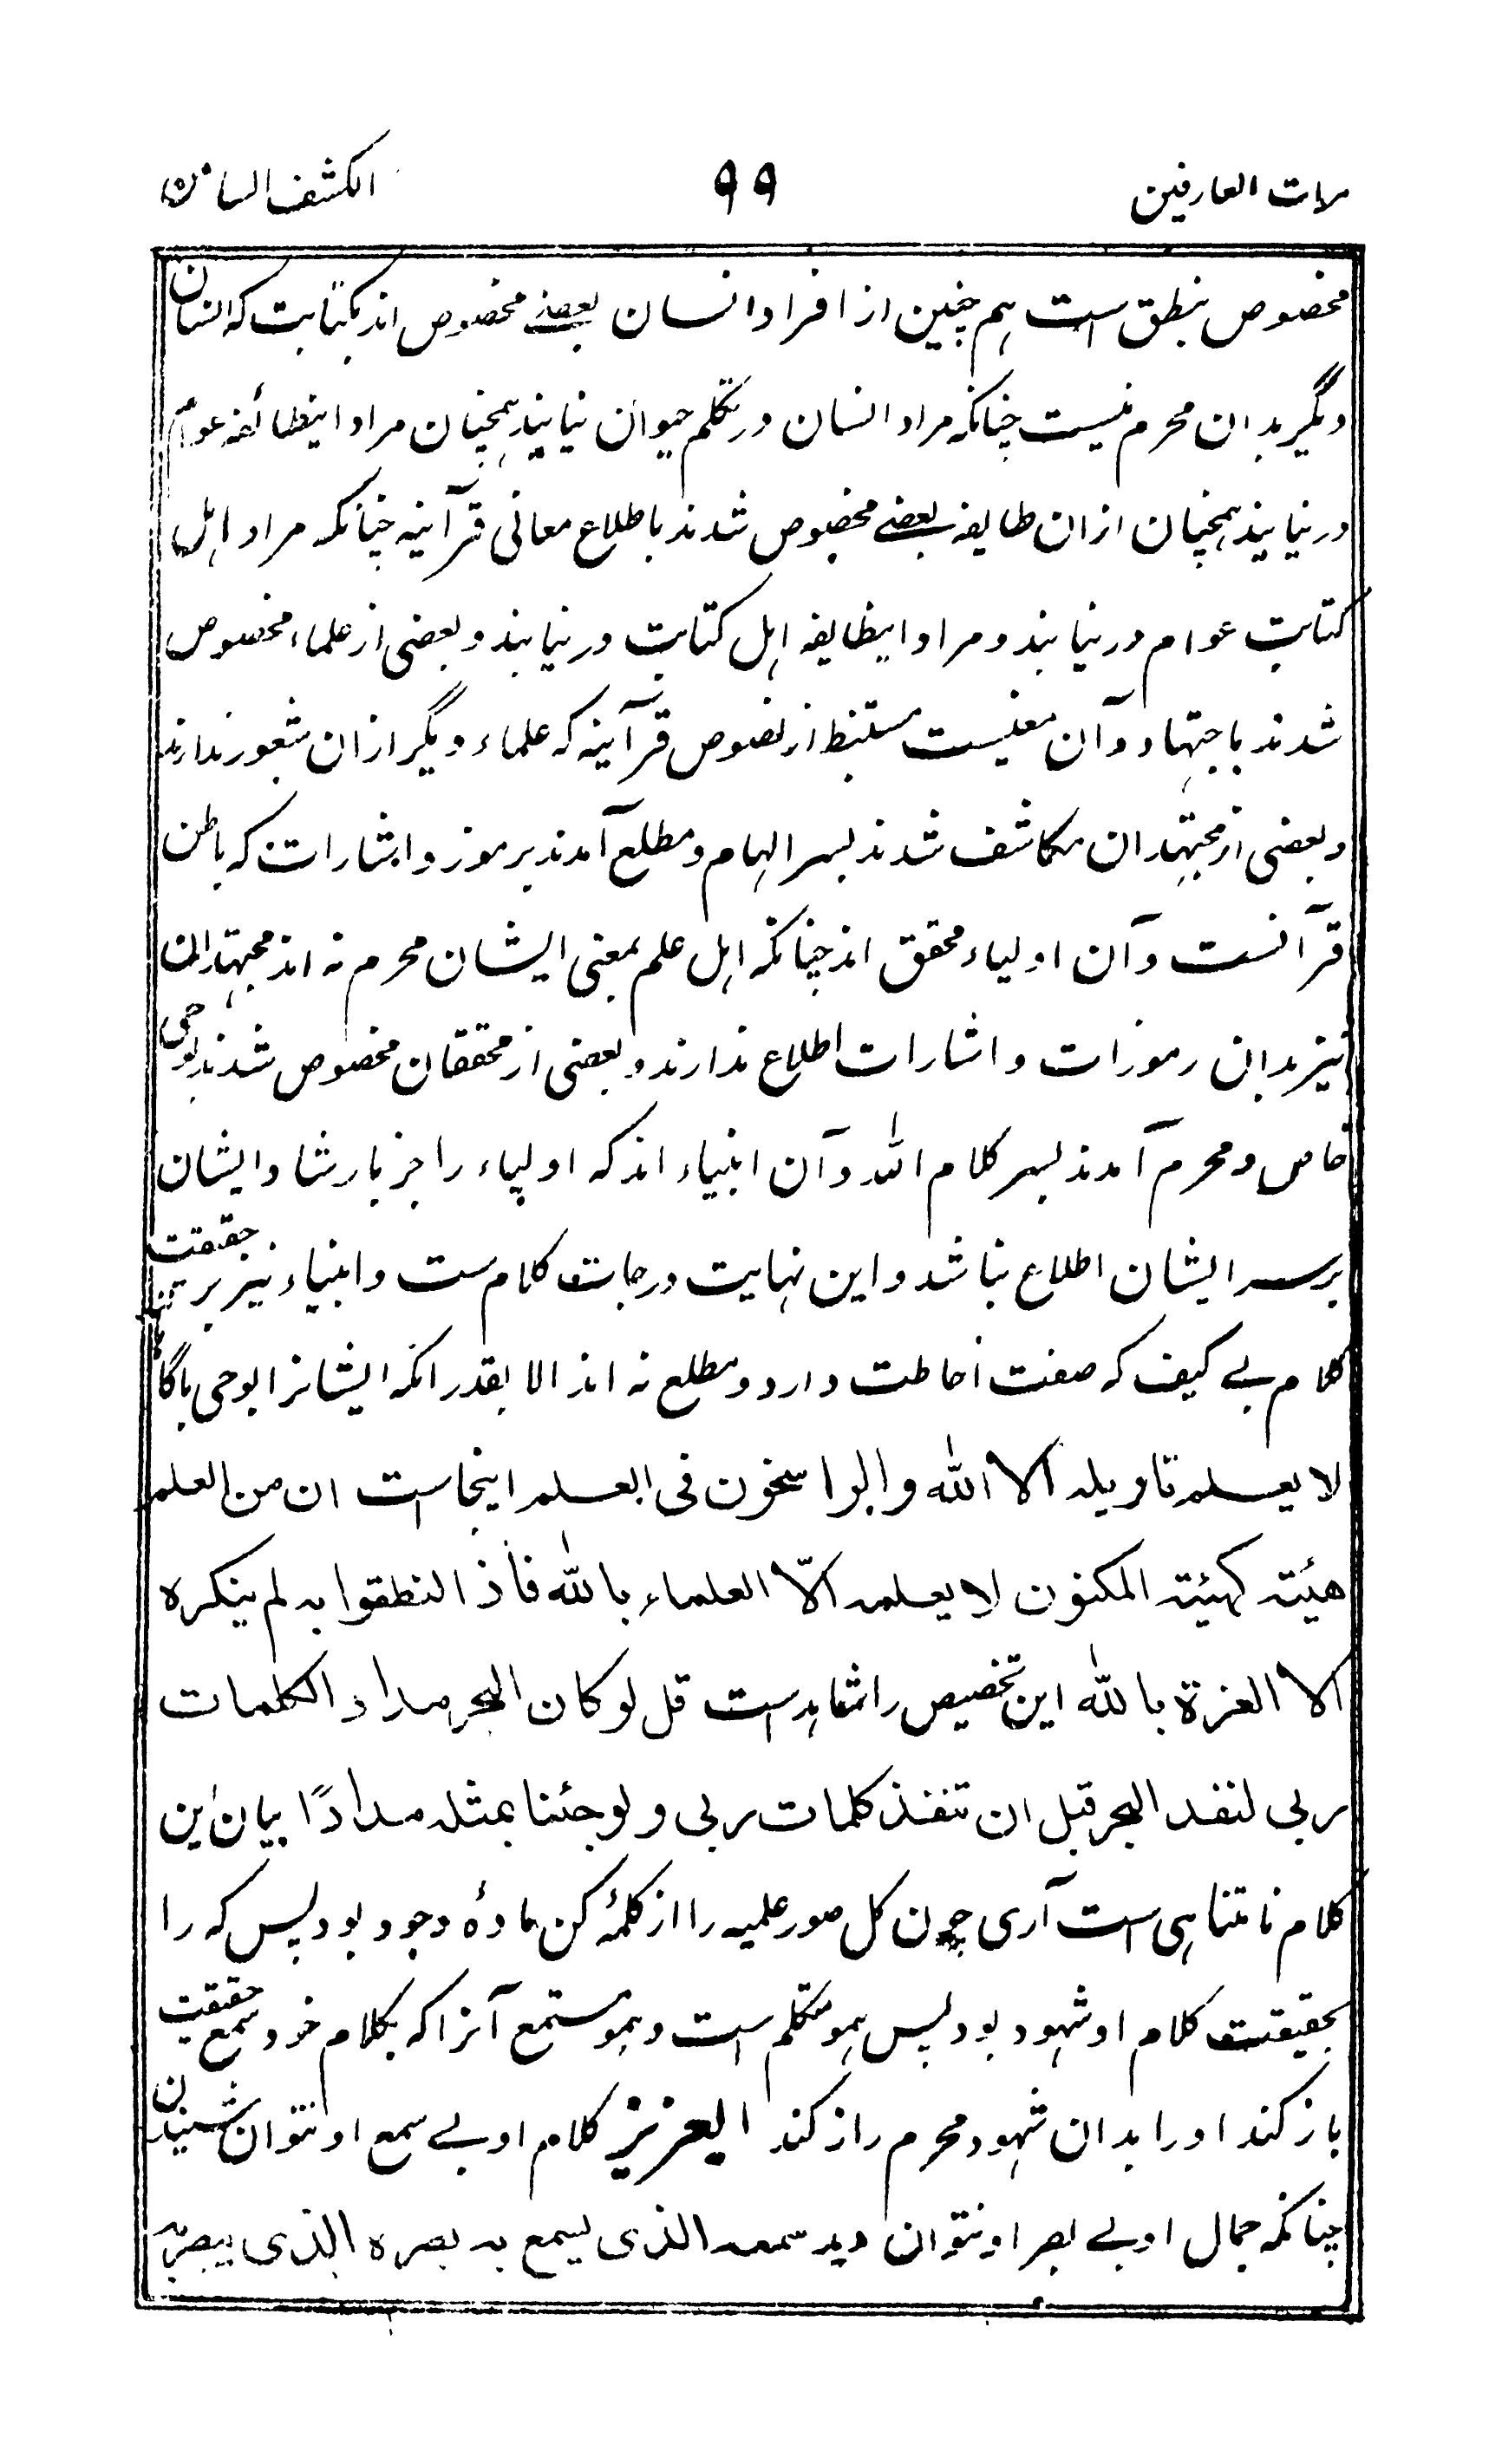 مرات العارفین ۹۹ الکشف الثامن
مخصوص بنطق است ہم چنین از افراد انسان بعضے مخصوص اند بکتابت کہ انسان
دیگر بدان محرم نیست چنانکہ مراد انسان در تکلم حیوان نیابند ہمچنان مراد اینطائفہ عوام
در نیابند ہمچنان ازان طایفہ بعضے مخصوص شدند باطلاع معانی قرآنیہ چنانکہ مراد اہل
کتابت عوام در نیابند و مراد اینطایفہ اہل کتابت در نیابند و بعضی از علماء مخصوص
شدند باجتہاد و آن معنیست مستنبط از نصوص قرآنیہ کہ علماء دیگر ازان شعور ندارند
و بعضی از مجتہدان مکاشف شدند بسر الہام و مطلع آمدند بر موز و اشارات کہ باطن
قرآنست و آن اولیاء محقق اند چنانکہ اہل علم بمعنی ایشان محرم نہ اند مجتہدان
نیز بدان رموزات و اشارات اطلاع ندارند و بعضی از محققان مخصوص شدند بوحی
خاص و محرم آمدند بسر کلام اللہ و آن انبیاء اند کہ اولیاء را جز بارشاد ایشان
برسر ایشان اطلاع نباشد و این نہایت درجات کلام ست و انبیاء نیز بر حقیقت
کلام بے کیف کہ صفت احاطت دارد و مطلع نہ اند الا بقدر انکہ ایشانرا بوحی
لا یعلم تاویلہ الا اللہ والراسخون فی العلم اینجاست ان من العلم
هیئتہ کهیئتہ المکنون لا یعلمہ الّا العلماء باللہ فاذ النطقوا بہ لم ینکرہ
الا العزة باللہ این تخصیص را شاہد ست قل لو کان البحر مداد الکلمات
ربی لنفد البحر قبل ان تنفذ کلمات ربی ولو جئنا بمثلہ مدادًا بیان این
کلام نامتناہی ست آری چون کل صور علمیہ را از کلمۂ کن مادۂ وجود بود پس کہ را
بحقیقت کلام او شہود بود پس ہمو متکلم ست و ہمو مستمع آنرا کہ بکلام خود سمع حقیقت
باز کند اورا بدان شہود محرم راز کند العزیز کلام او بے سمع او نتوان شنیدن
چنانکہ جمال او بے بصر او نتوان دید سمعہ الذی یسمع بہ بصرہ الذی یبصر بہ